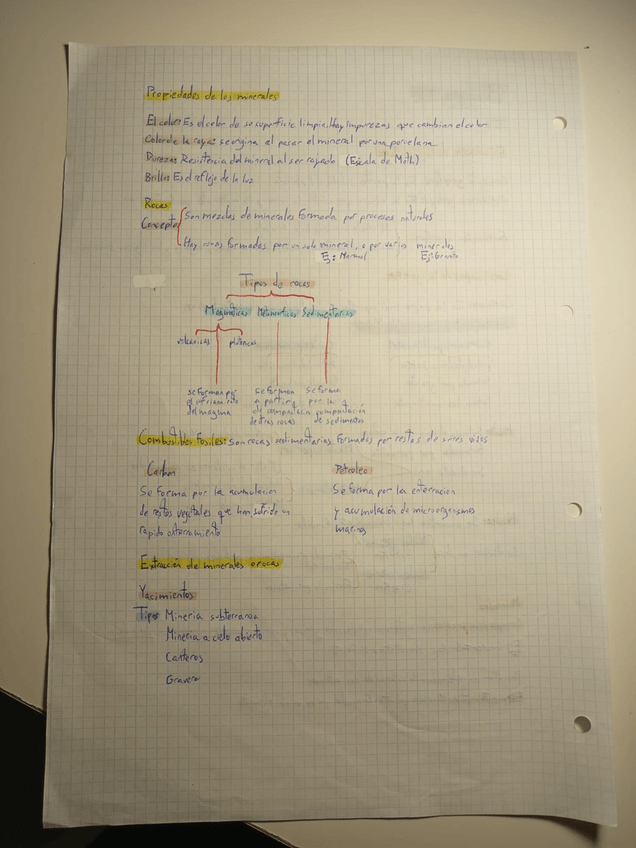 Propiedades de los minerales
El color: Es el color de su superficie limpia. Hay impurezas que cambian el color.
Color de la raya: se origina al pasar el mineral por una porcelana
Dureza: Resistencia del mineral al ser rayado (Escala de Moth)
Brillo: Es el reflejo de la luz
Rocas
Concepto
Son mezclas de minerales formada por procesos naturales
Hay rocas formadas por un solo mineral, o por varios minerales
Ej: Marmol Ej: Granito
Tipos de rocas
Magmáticas Metamorficas Sedimentarias
volcanicas plutonicas
se forman por se forman se forma
el enfriamiento a partir por la
del magma de compactacion compactación
de tras rocas de sedimentos
Combustibles Fosiles: son rocas sedimentarias formadas por restos de seres vivos
Carbon Petroleo
Se forma por la acumulacion Se forma por la enterracion
de restos vegetales que han sufrido un y acumulación de microorganismos
rapido enterramiento marinos
Extracción de minerales o rocas
Yacimientos
Tipos Mineria subterranea
Mineria a cielo abierto
Canteros
Gravera